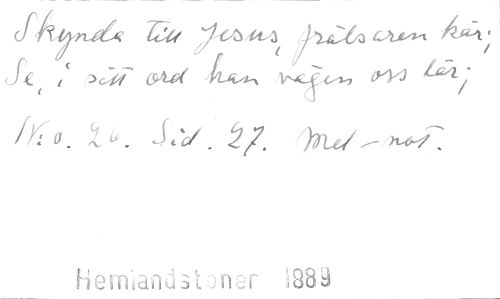 Skynda till Jesus, frälsaren kär;
Se, i sitt ord han vägen oss lär;
N:o. 20. Sid. 27. Mel-not.
Hemlandstoner 1889